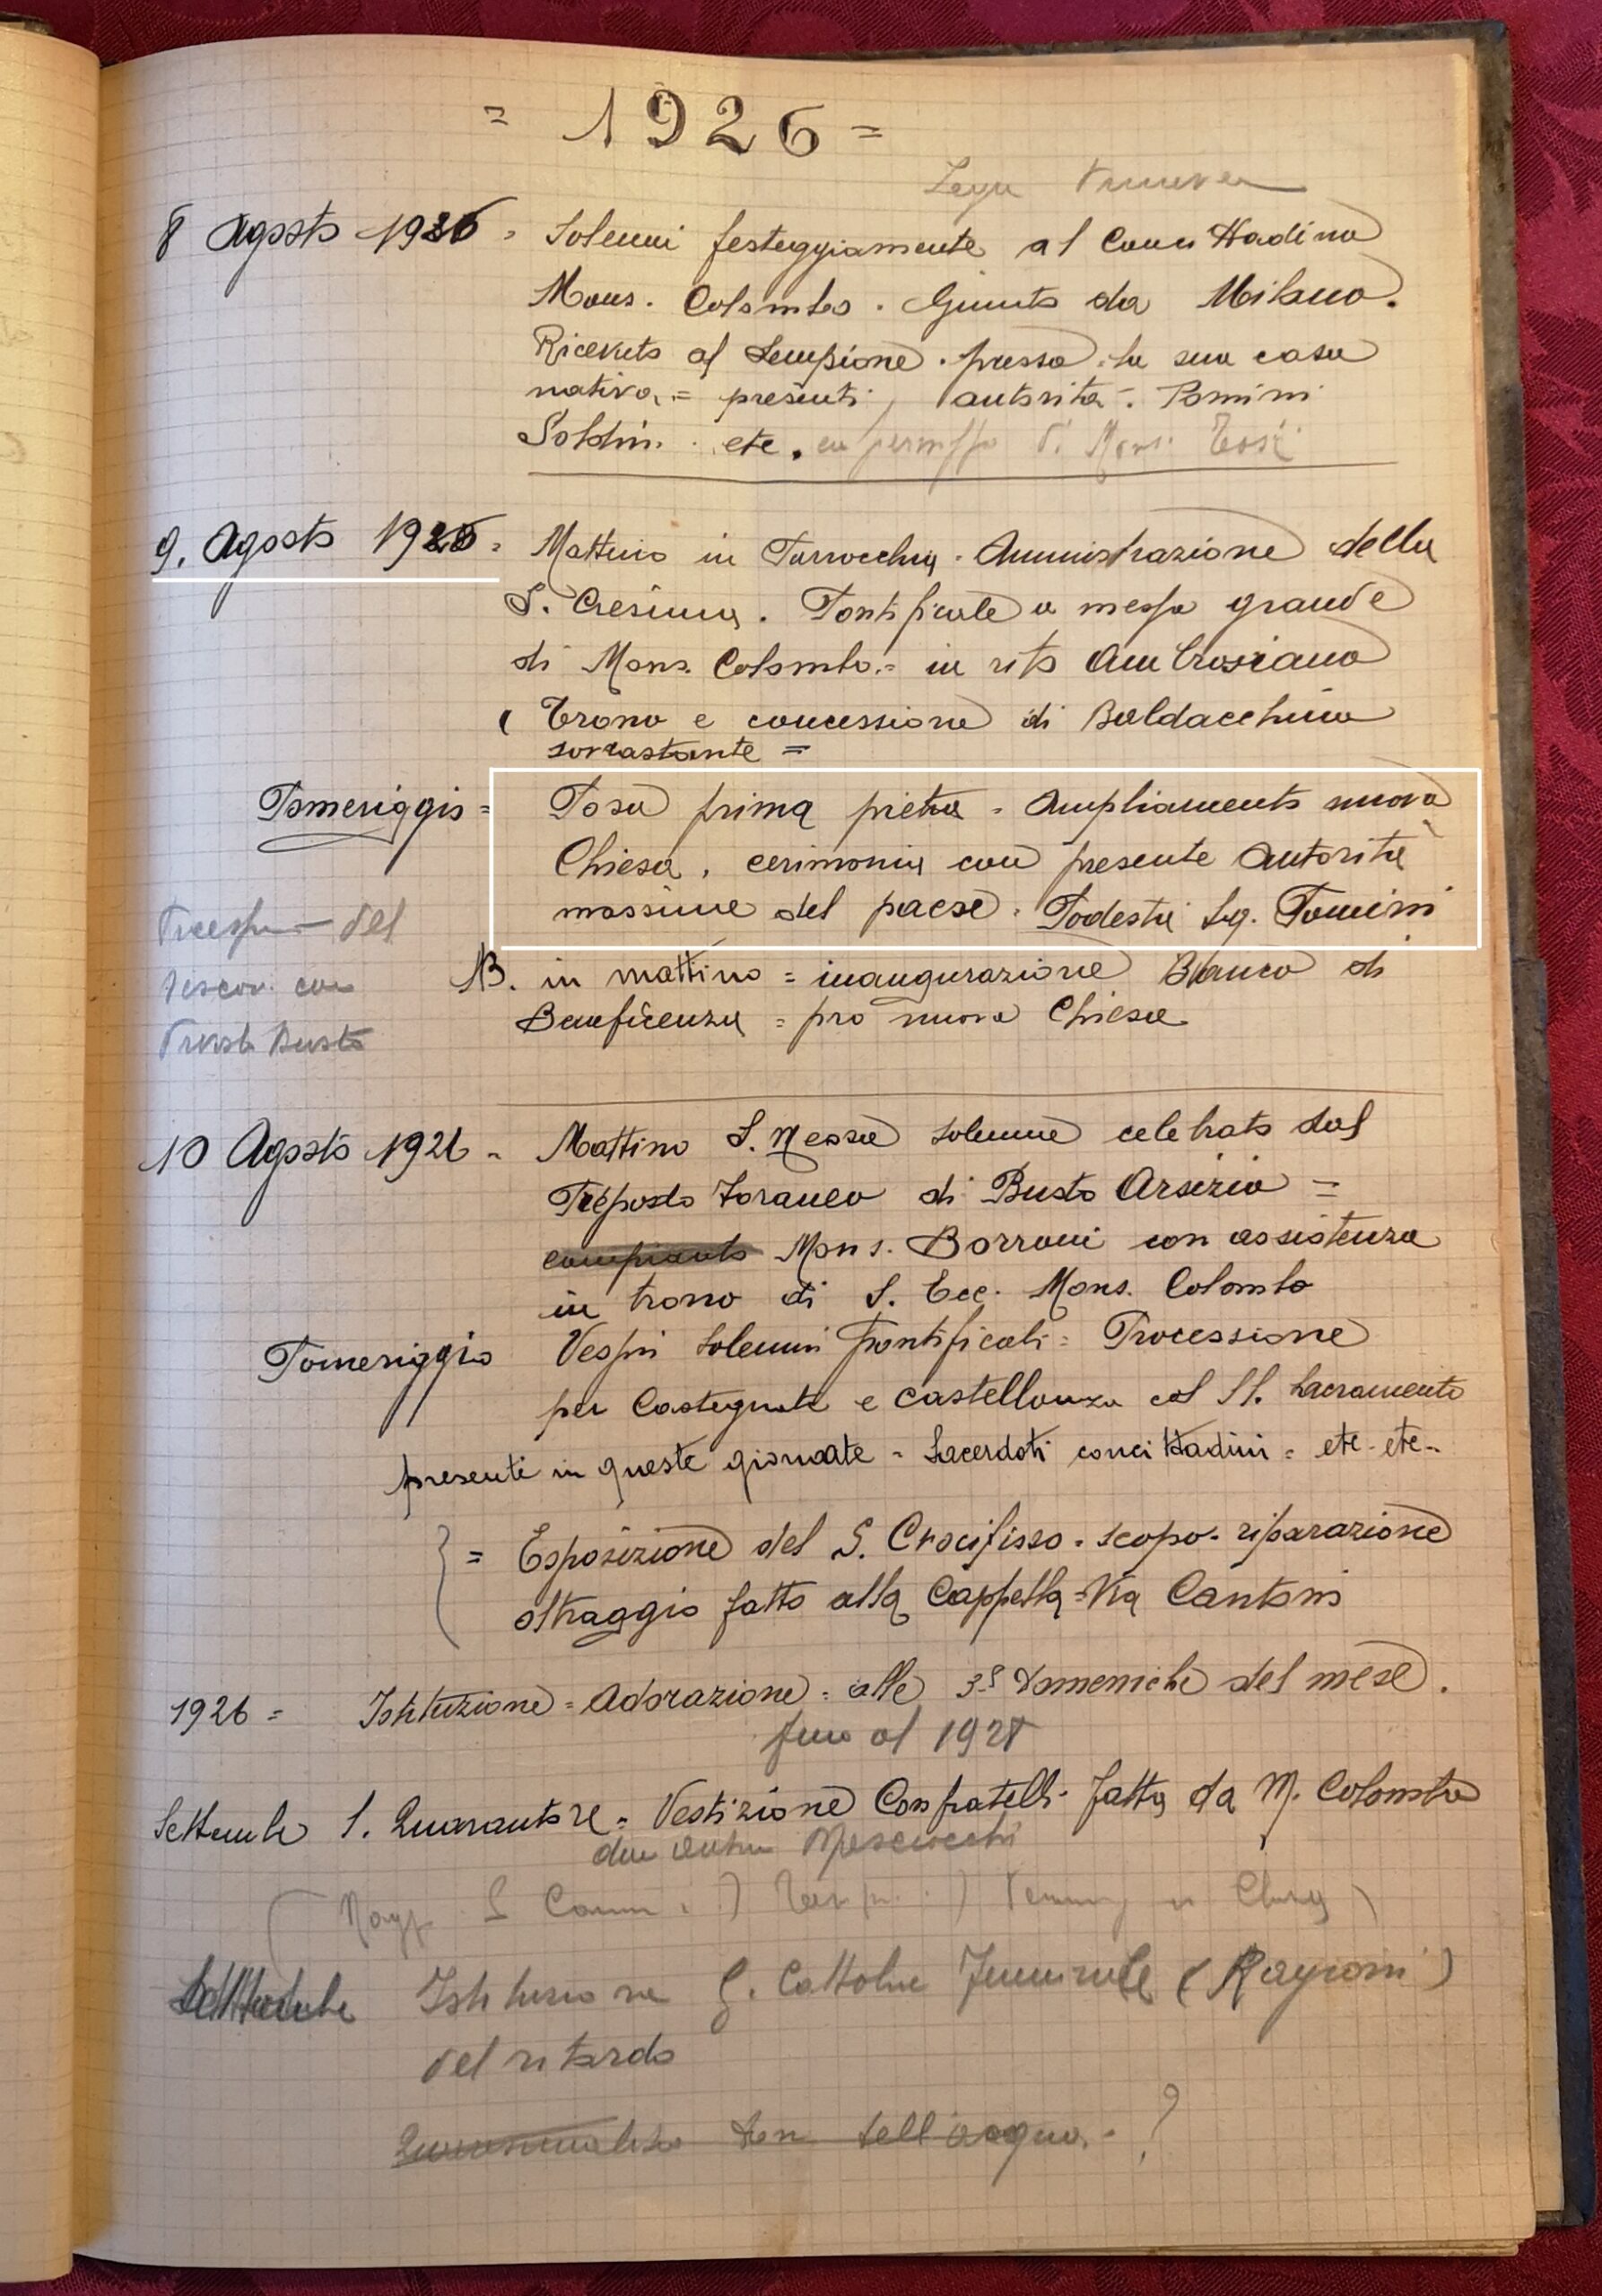 = 1926 =
8 Agosto 1926 = Solenni festeggiamente al Concittadino
Mons. Colombo. Giunto da Milano.
Ricevuto al Sempione. presso la sua casa
nativa = presenti, autorità. Pomini
Soldini. etc. Mons. Tosi
9. Agosto 1926 = Mattino in Parrocchia. Amministrazione della
S. Cresima. Pontificale a messa grande
di Mons. Colombo. = in rito Ambrosiano
( Trono e concessione di Baldacchino
sovrastante =
Pomeriggio = Posa prima pietra = Ampliamento nuova
Chiesa, cerimonia con presente Autorità
massime del paese. Podestà Sig. Pomini
NB. in mattino = inaugurazione Banco di
Beneficenza = pro nuova Chiesa
del
con
Busto
10 Agosto 1926 = Mattino S. Messa solenne celebrata dal
Preposto Foraneo di Busto Arsizio =
Mons. Borroni con assistenza
in trono di S. Ecc. Mons. Colombo
Pomeriggio Vespri solenni pontificali = Processione
per Castegnate e Castellanza col SS. Sacramento
presenti in queste giornate = Sacerdoti concittadini = etc. etc.
= Esposizione del S. Crocifisso. scopo. riparazione
oltraggio fatto alla Cappella = Via Cantoni
1926 = Istituzione = Adorazione = alle 3e domeniche del mese.
fino al 1928
Settembre S. Quarantore = Vestizione Confratelli. fatta da M. Colombo
Settembre Istituzione G. Cattolica Femminile (Ragioni)
del ritardo
Don Dell'acqua. ?